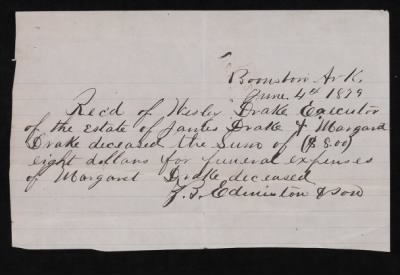 Boonston Ark.
June. 4th 1879
Rec'd of Wesley Drake Executor
of the Estate of James Drake & Margard
Drake deceased the Sum of ($8.00)
eight dollars for funeral expenses
of Margaret Drake deceased
J. B. Edmiston & Son